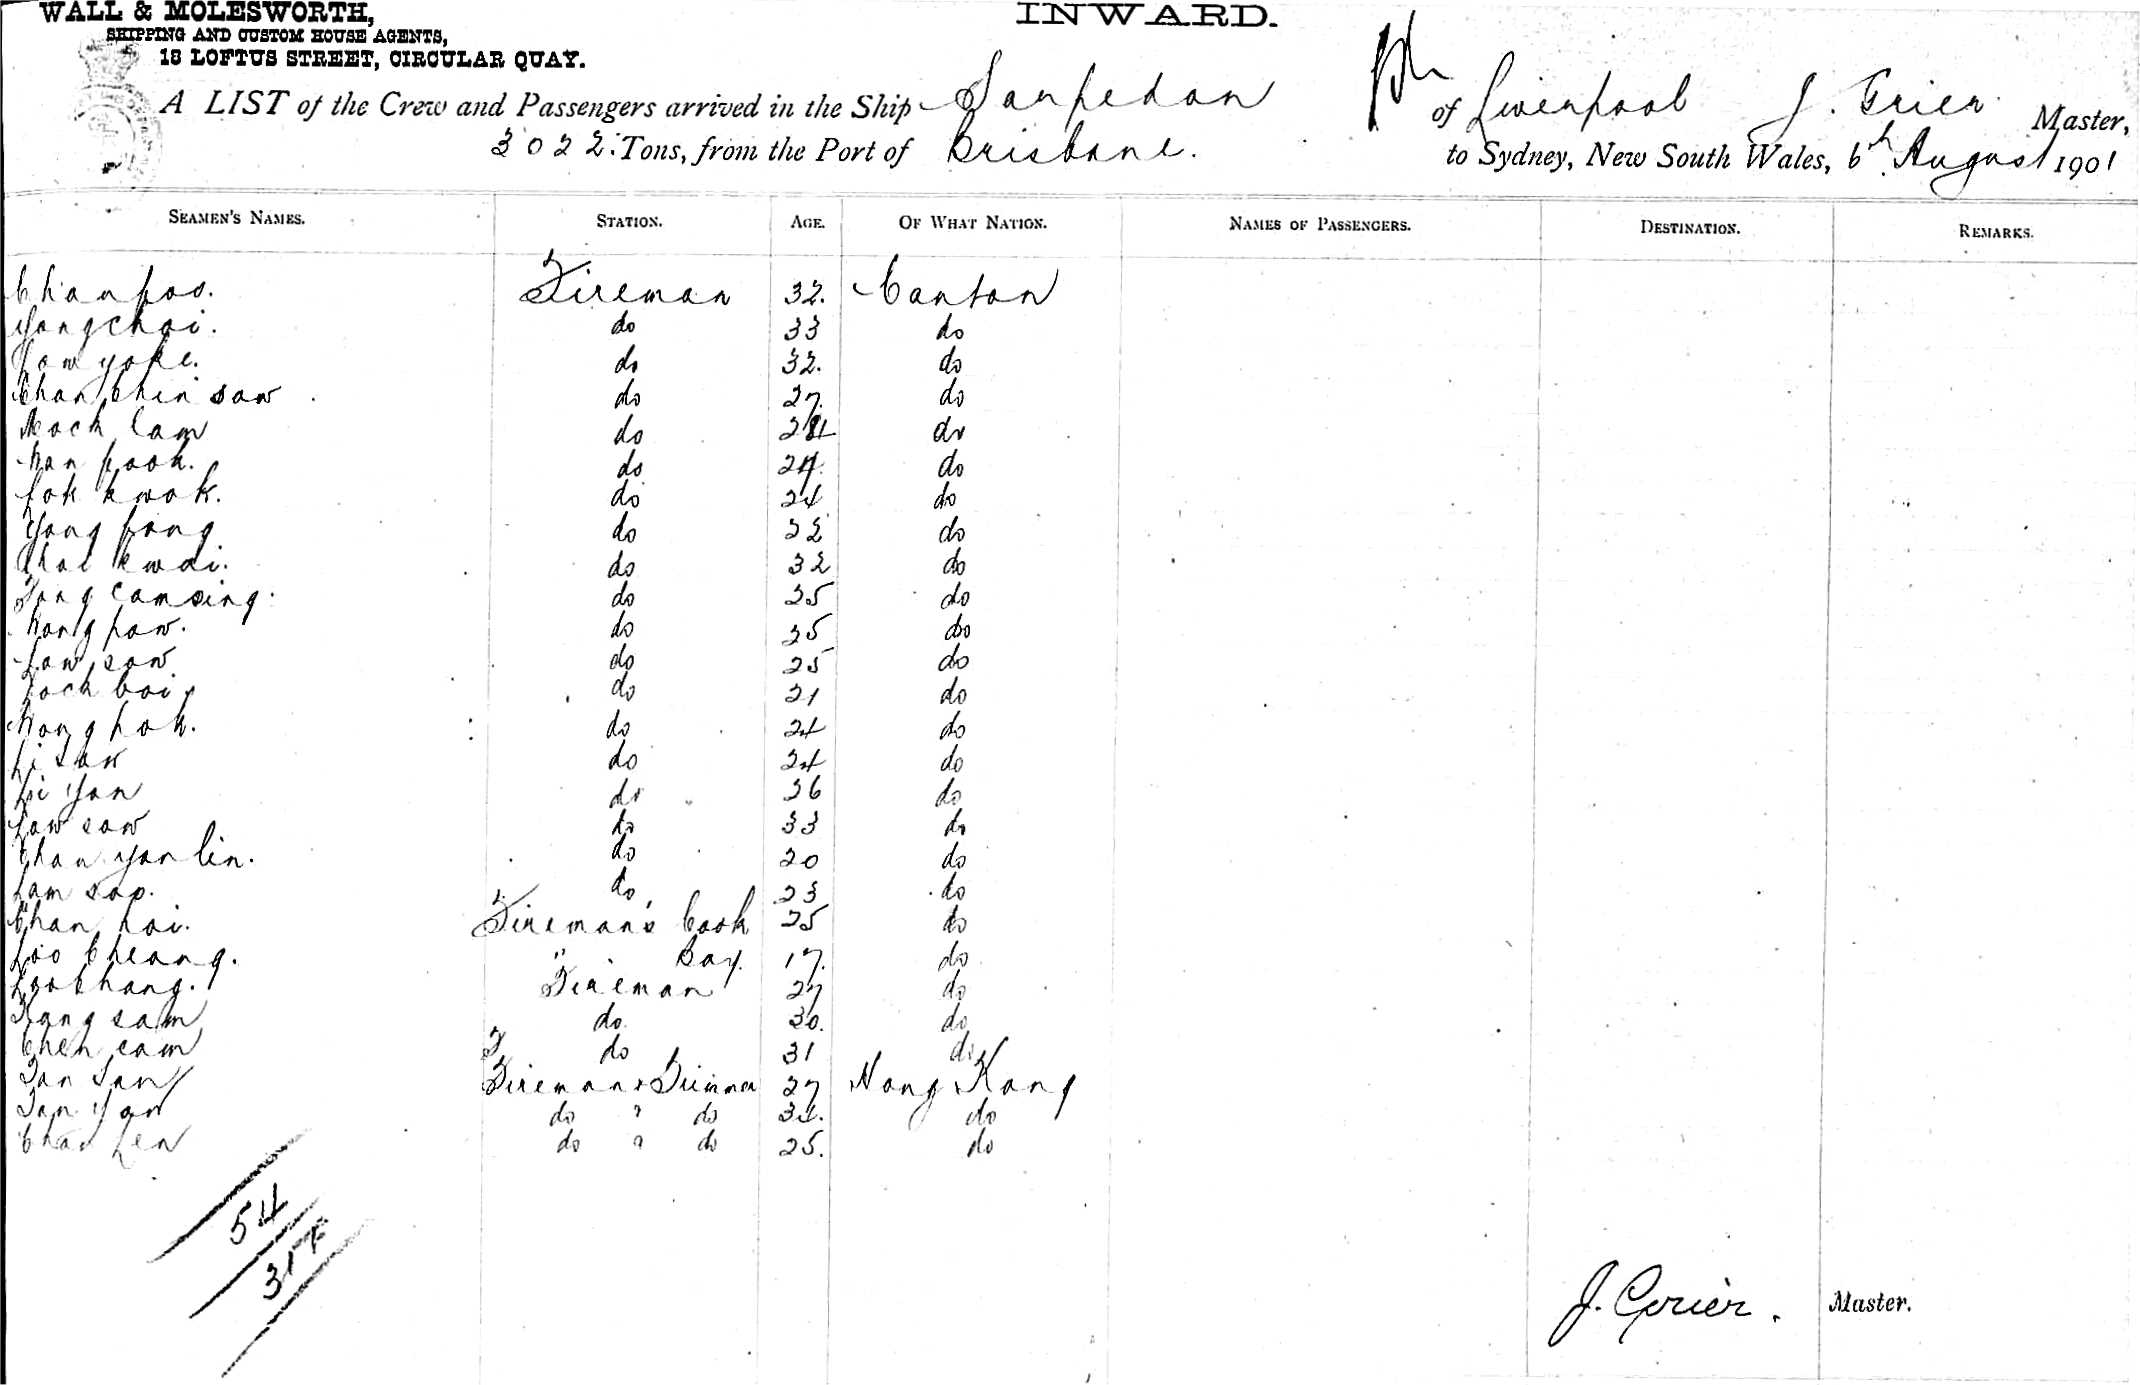 WALL & MOLESWORTH,
SHIPPING AND CUSTOM HOUSE AGENTS,
18 LOFTUS STREET, CIRCULAR QUAY.
INWARD.
A LIST of the Crew and Passengers arrived in the Ship Sarpedon of Liverpool J. Grier Master,
3022 Tons, from the Port of Brisbane. to Sydney, New South Wales, 6th August 1901
SEAMEN'S NAMES. STATION. AGE. OF WHAT NATION. NAMES OF PASSENGERS. DESTINATION. REMARKS.
Chan foo. Fireman 32. Canton
Yong choi. do 33 do
Low yoke. do 32. do
Chan Chin saw do 27. do
Mock Cam do do
Man fook. do 24. do
Lok kwok. do 24 do
Yong fong do 22 do
kwai. do 32 do
Tong Camsing. do 25 do
Wong paw. do 25 do
Law saw do 25 do
boi do 21 do
Wong hok. do 24 do
Li saw do 24 do
Li Yan do 36 do
Law saw do 33 do
Chan yan lin. do 20 do
Lam sap. do 23 do
Chan hoi. Fireman's Cook 25 do
Loo Cheong. " Boy. 17. do
Loo Chang. Fireman 27 do
sam do 30. do
Chen cam do 31 do
San Fireman & Trimmer 27 Hong Kong
Yan do " do 34. do
Chan do " do 25. do
54
J. Grier. Master.